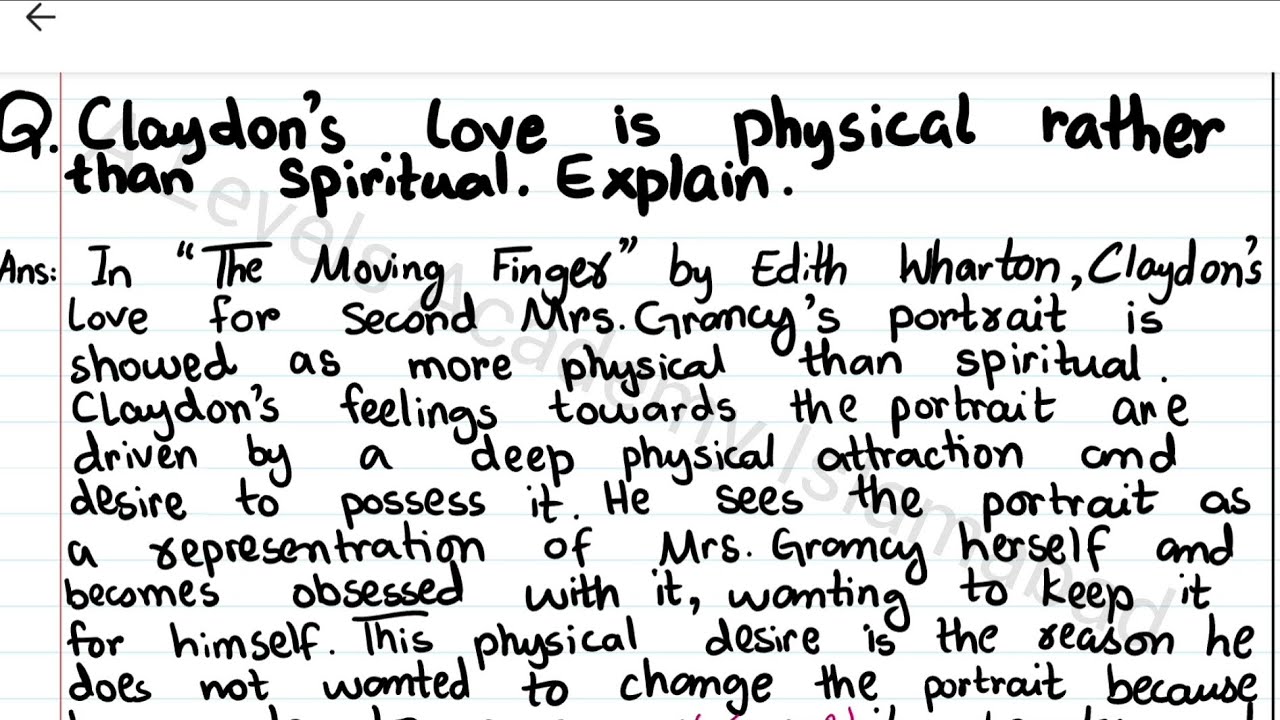 Q. Claydon's love is physical rather
than spiritual. Explain.
Ans: In "The Moving Finger" by Edith Wharton, Claydon's
love for Second Mrs. Grancy's portrait is
showed as more physical than spiritual.
Claydon's feelings towards the portrait are
driven by a deep physical attraction and
desire to possess it. He sees the portrait as
a representration of Mrs. Grancy herself and
becomes obsessed with it, wanting to keep it
for himself. This physical desire is the reason he
does not wanted to change the portrait because
A Levels Academy Islamabad